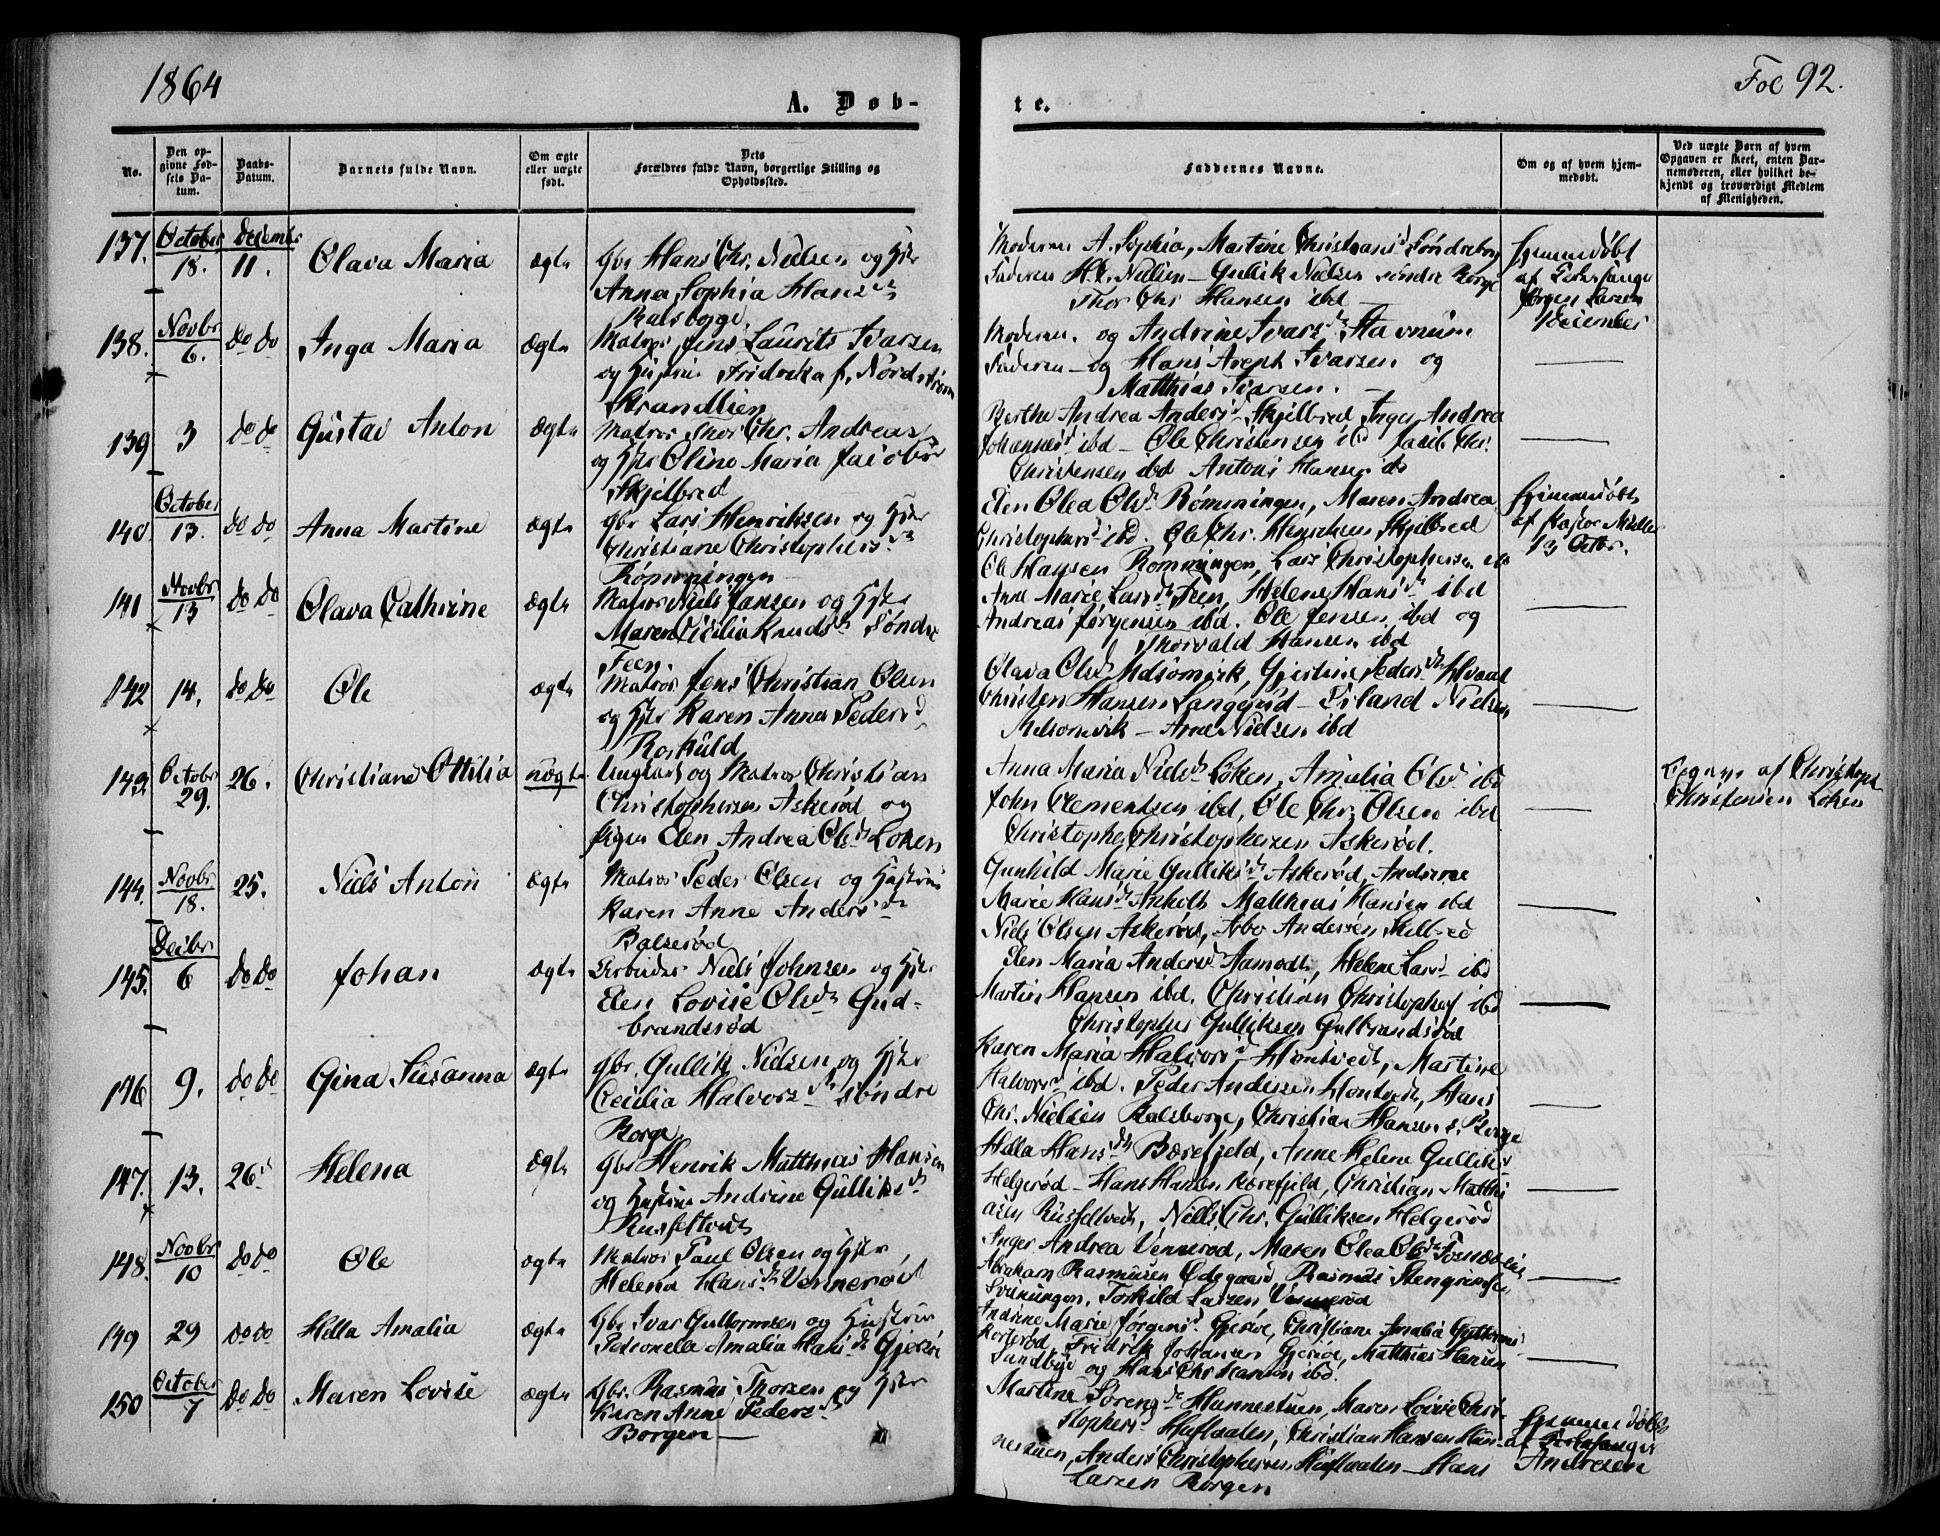 1864
A. Døb-
No.
Den op-
givne Fød-
sels Da-
tum.
Daabs-
Datum.
Barnets fulde Navn.
Om ægte
eller uægte
født.
Dets
Forældres fulde Navn, borgerlige Stilling og
Opholdssted.
137.
October
18.
December
11.
Olava Maria
ægte
Gbr Hans Chr. Nielsen og Hstr
Anna Sophia Hansd
Kalsbyge
138.
Novbr
6.
do do
Inga Maria
Ægte
Matros Jens Laurits Ivarsen
og Hustru Fridrika f. Nordstrøm
Strandlien
139
3
do do
Gustav Anton
Ægte
Matros Thor Chr. Andreas
og Hstr Oline Maria Jacobs
Skjelbred
140.
October
13.
do do
Anna Martine
ægte
Gbr Lars Henriksen og Hstr
Christiane Christophersd
Rømmingen
141
Novbr
13
do do
Olava Cathrine
ægte
Matros Niels Jansen og Hstr
Maren Cicilia Knudsd Søndre
Feen.
142
14.
do do
Ole
ægte
Matros Jens Christian Olsen
og Hstr Karen Anna Pedersd
Roskuld
143.
Octobr
29.
26.
Christiane Ottilia
uægte
Ungkarl og Matros Christian
Christophersen Askerød og
Pigen Elen Andrea Olsd Løken
144.
Novbr
18.
25.
Niels Anton
ægte
Matros Peder Olsen og Hustru
Karen Anne Andersd
Balserød
145.
Decbr
6
do do
Johan
ægte
Arbeider Niels Johnsen og Hstr
Elen Lovise Olsd Gud-
brandsrød
146
9.
do do
Gina Susanna
ægte
Gbr. Gullik Nielsen og Hstr
Cecilia Halvorsd søndre
Borge
147.
13.
26
Helena
Ægte
Gbr Henrik Matthias Hansen
og Hustru Andrine Gulliksd
Russeltvedt
148.
Novbr
10
do do
Ole
ægte
Matros Paul Olsen og Hstr
Helena Hansd Vennerød
149
29
do do
Hella Amalia
ægte
Gbr Ivar Guttormsen og Hustru
Petronella Amalia Hansd Gjersøe
150
October
7
do do
Maren Lovise
ægte
Gbr. Rasmus Thorsen og Hstr
Karen Anne Pedersd
Borgen
Fol 92.
te.
Faddernes Navne.
Om og af hvem hjem-
medøbt.
Ved uægte Børn af hvem
Opgaven er skeet, enten Bar-
nemoderen, eller hvilket be-
kjendt og troværdigt Medlem
af Menigheden.
Moderen A. Sophia, Martine Christiansd Søndreborg
Faderen H. C. Nielsen – Gullik Nielsen søndre Borge
Thor Chr Hansen ibd
Hjemmedøbt
af
Jørgen Larsen
December
Moderen. og Andrine Ivarsd Stavnum
Faderen – og Hans Arept Ivarsen og
Matthias Ivarsen.
Berthe Andrea Andersd Skjelbred, Inger Andrea
Johannesd ibd – Ole Christensen ibd Jacob Chr.
Christensen ibd Anton Hansen do
Elen Olea Olsd Rømmingen, Maren Andrea
Christophersd ibd. Ole Chr. Henriksen Skjelbred
Ole Hansen Rømmingen, Lars Christophersen do
Hjemmedøbt
af Pastor Müller
13 Octbr.
Anne Marie Larsd Feen, Helene Hansd ibd
Andreas Jørgensen ibd. Ole Jensen ibd og
Thorvald Hansen ibd
Olava Olsd Melsomvik, Gjertine Pedersd Hvaal
Christen Hansen Langgrid – Eiland Nielsen
Melsomvik – Arne Nielsen ibd
Anna Maria Nielsd Løken, Amalia Olsd ibd
John Clementsen ibd, Ole Chr. Olsen ibd
Christopher Christophersen Askerød.
Opgave af Christoph
Christensen Løken
Gunhild Marie Gulliksd Askerød, Andrine
Marie Hansd Anholt Matthias Hansen ibd
Niels Olsen Askerød, Abo Andersen Skelbred
Elen Maria Andersd Aamodt, Helene Larsd ibd
Martin Hansen ibd. Christian Christophers ibd
Christopher Gulliksen Gulbrandsrød
Karen Maria Halvorsd Hontvedt, Martine
Halvorsd ibd. Peder Andersen Hontvedt, Hans
Chr. Nielsen Kalsborge, Christian Hansen s. Borge
Hella Hansd Børefjeld, Anne Helene Gulliks
Helgerød – Hans Hansen Børefjeld, Christian Matthi
asen Russeltvedt, Niels Chr. Gulliksen Helgerød
Inger Andrea Vennerød, Maren Olea Olsd
Abraham Rasmusen Ødegaard Rasmus
Torkild Larsen Vennerød
Andrine Marie Jorgensd Gjersøe, Christiane Amalia Guttorms
Fridrik Johansen Gjersøe, Matthias Hansen
Sundbye og Hans Chr Hansen ibd.
Martine Sørensd Hunnestuen, Maren Lovise Chri-
stophersd Huflaaten, Christian Hansen Hun-
nestuen, Anders Christophersen Huflaaten – Hans
Larsen Borgen
Hjemmedøbt
af
Andresen